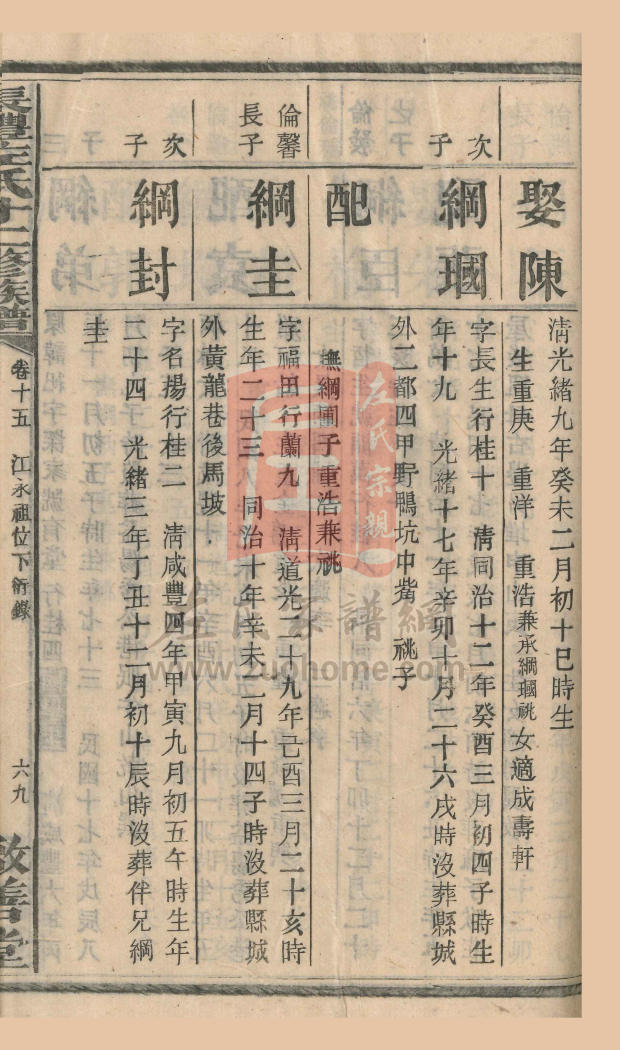 娶陳
清光緒九年癸未二月初十巳時生
生重庚　重洋　重浩兼承綱瓛祧女適成壽軒
次子
綱瓛
字長生行桂十　清同治十二年癸酉三月初四子時生
年十九　光緒十七年辛卯十月二十六戌時沒葬縣城
外二都四甲野鴨坑中嘴　祧子
配
撫綱圃子重浩兼祧
倫馨長子
綱圭
字福田行蘭九　清道光二十九年己酉三月二十亥時
生年二十三　同治十年辛未二月十四子時沒葬縣城
外黃龍巷後馬坡
次子
綱封
字名揚行桂二　清咸豐四年甲寅九月初五午時生年
二十四　光緒三年丁丑十二月初十辰時沒葬伴兄綱
圭
卷十五　江永祖位下衍錄
六九
敦善堂
左氏宗親
左氏家譜網
www.zuohome.com